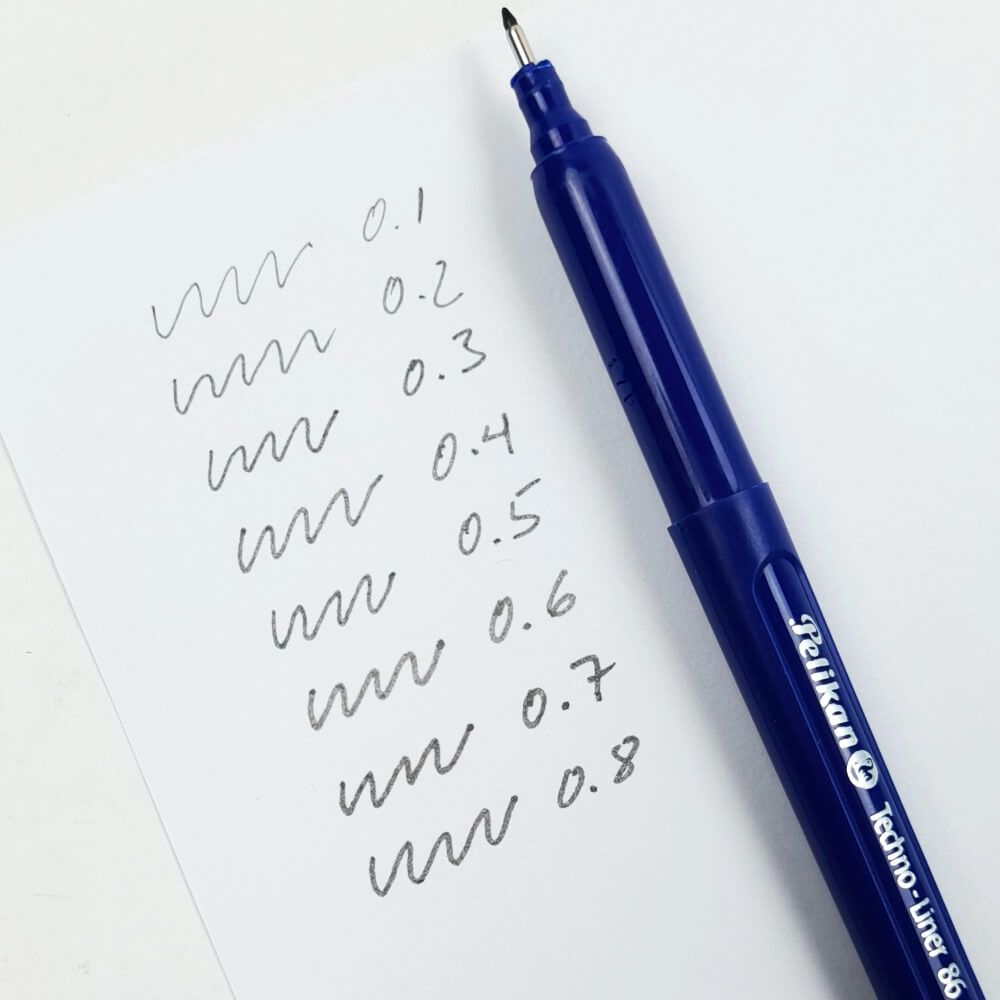 0.1
0.2
0.3
0.4
0.5
0.6
0.7
0.8
Pelikan Techno-Liner 86